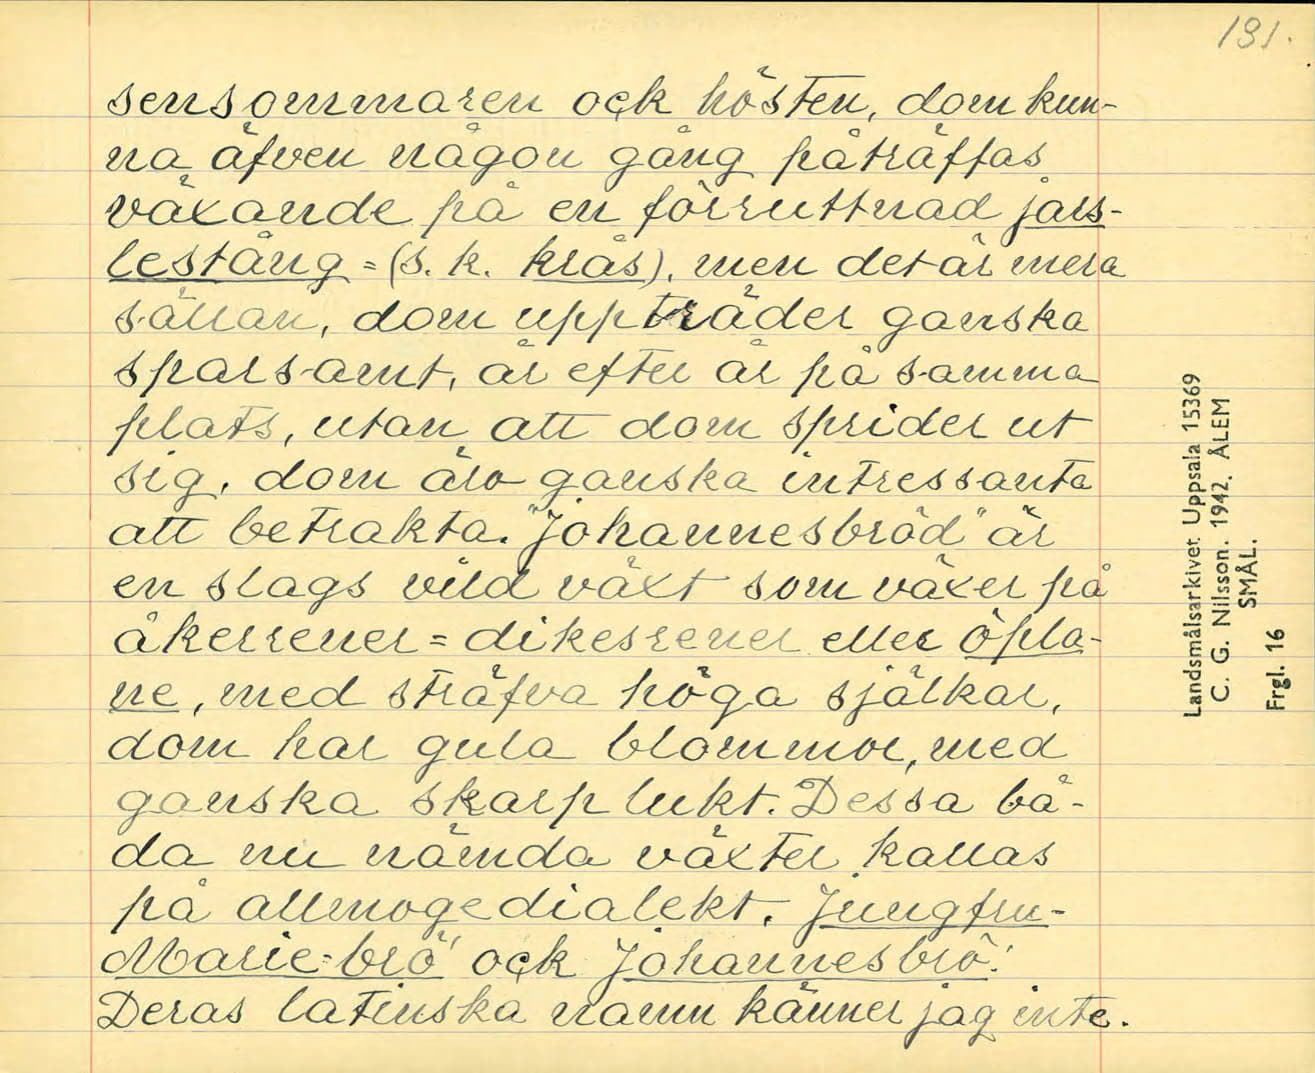 131.
sensommaren ock hösten, dom kun-
na äfven någon gång påträffas
växande på en förruttnad jars-
lestång = (s. k. krås), men det är mera
sällan, dom uppträder ganska
sparsamt, år efter år på samma
plats, utan att dom sprider ut
sig, dom äro ganska intressanta
att betrakta. "Johannesbröd" är
en slags vild växt som växer på
åkerrener = dikesrener eller öpla-
ne, med sträfva höga själkar,
dom har gula blommor, med
ganska skarp lukt. Dessa bå-
da nu nämda växter kallas
på allmogedialekt. Jungfru-
Marie-brö' ock Johannesbrö'.
Deras latinska namn känner jag inte.
Landsmålsarkivet Uppsala 15369
C. G. Nilsson. 1942. ÅLEM
SMÅL.
Frgl. 16